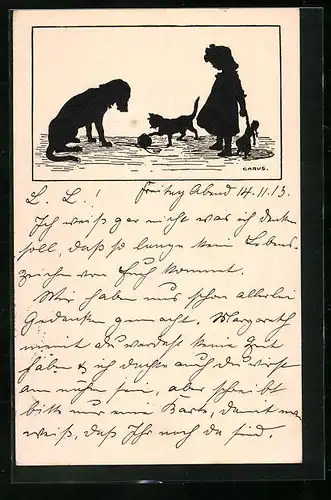 CARUS.
L. L.! Freitag Abend 14.11.13.
Ich weiß gar nicht was ich denken
soll, daß so lange kein Lebens-
zeichen von Euch kommt.
Wir haben uns schon allerlei
Gedanken gemacht. Margareth
meint du werdest keine Zeit
haben & ich dachte auch du wirst
am nähn sein, aber schreibt
bitte nur eine Karte, damit man
weiß, daß Ihr noch da seid.